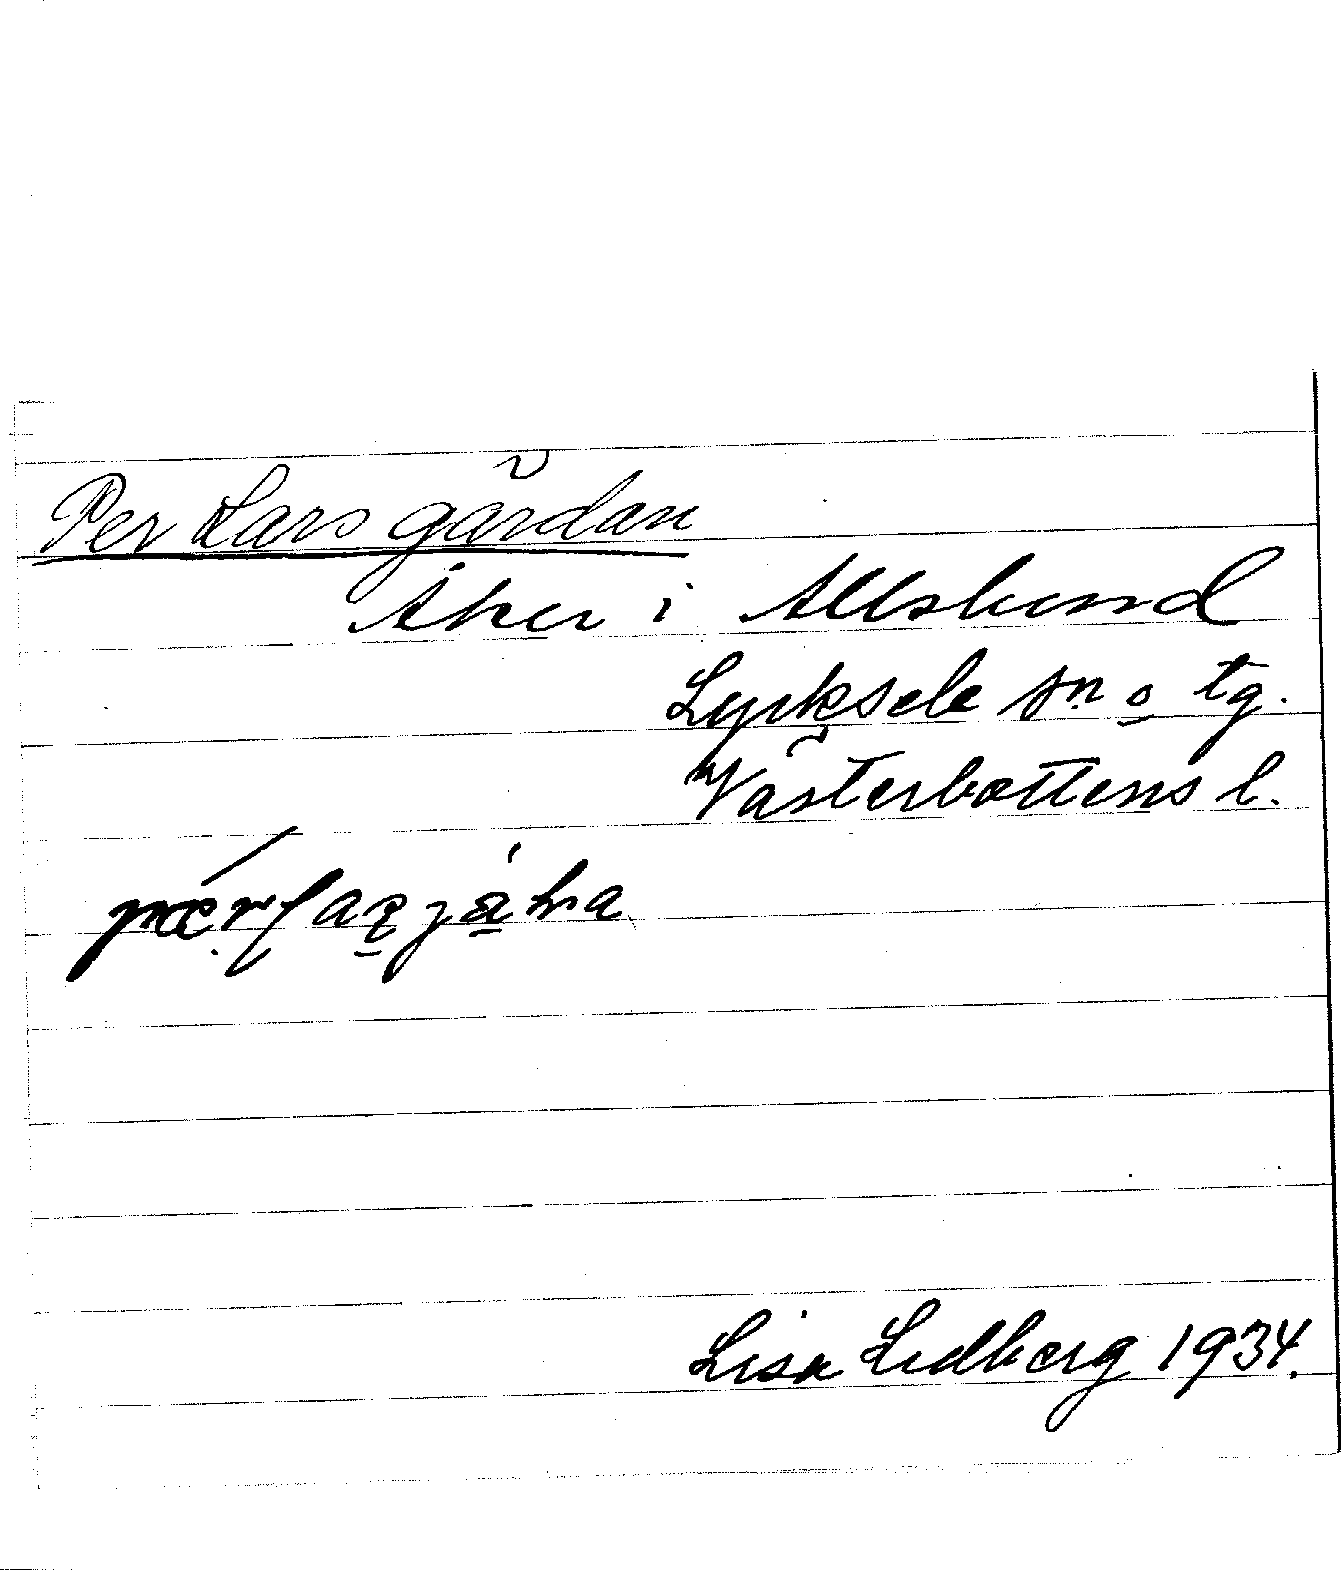 Per Lars gårdan
Åker i Allslund
Lycksele sn o tg.
Västerbottens l.
Lisa Lidberg 1934.